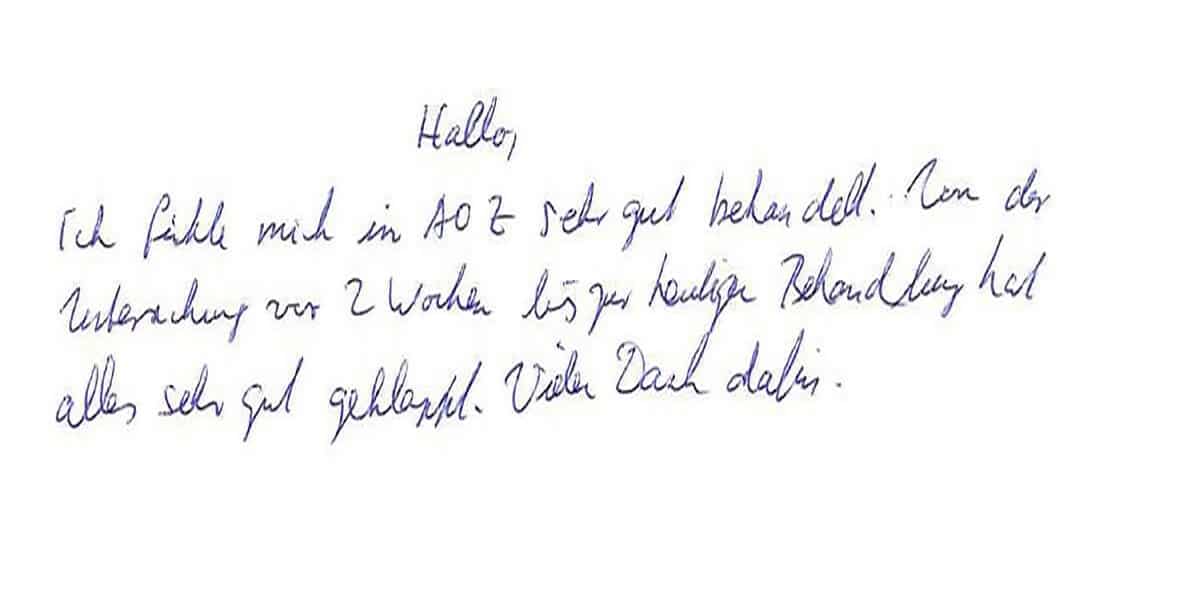 Hallo,
Ich fühle mich in AOZ sehr gut behandelt. Von der
Untersuchung vor 2 Wochen bis zur heutigen Behandlung hat
alles sehr gut geklappt. Vielen Dank dafür.